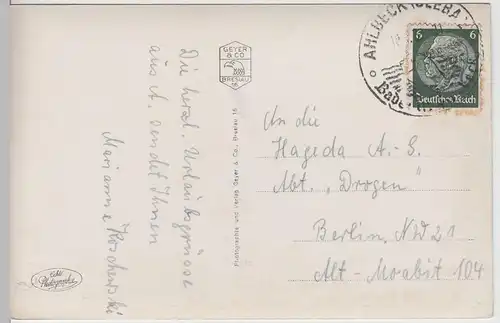 Die herzl. Urlaubsgrüsse
aus A. sendet Ihnen
Marianne Koschewski
GEYER
& CO
BRESLAU
16
Photographie und Verlag Geyer & Co., Breslau 16
Echte
Photographie
AHLBECK (SEEBAD)
6 6
Deutsches Reich
An die
Hageda A.-G.
Abt. „Drogen"
Berlin NW 21
Alt-Moabit 104